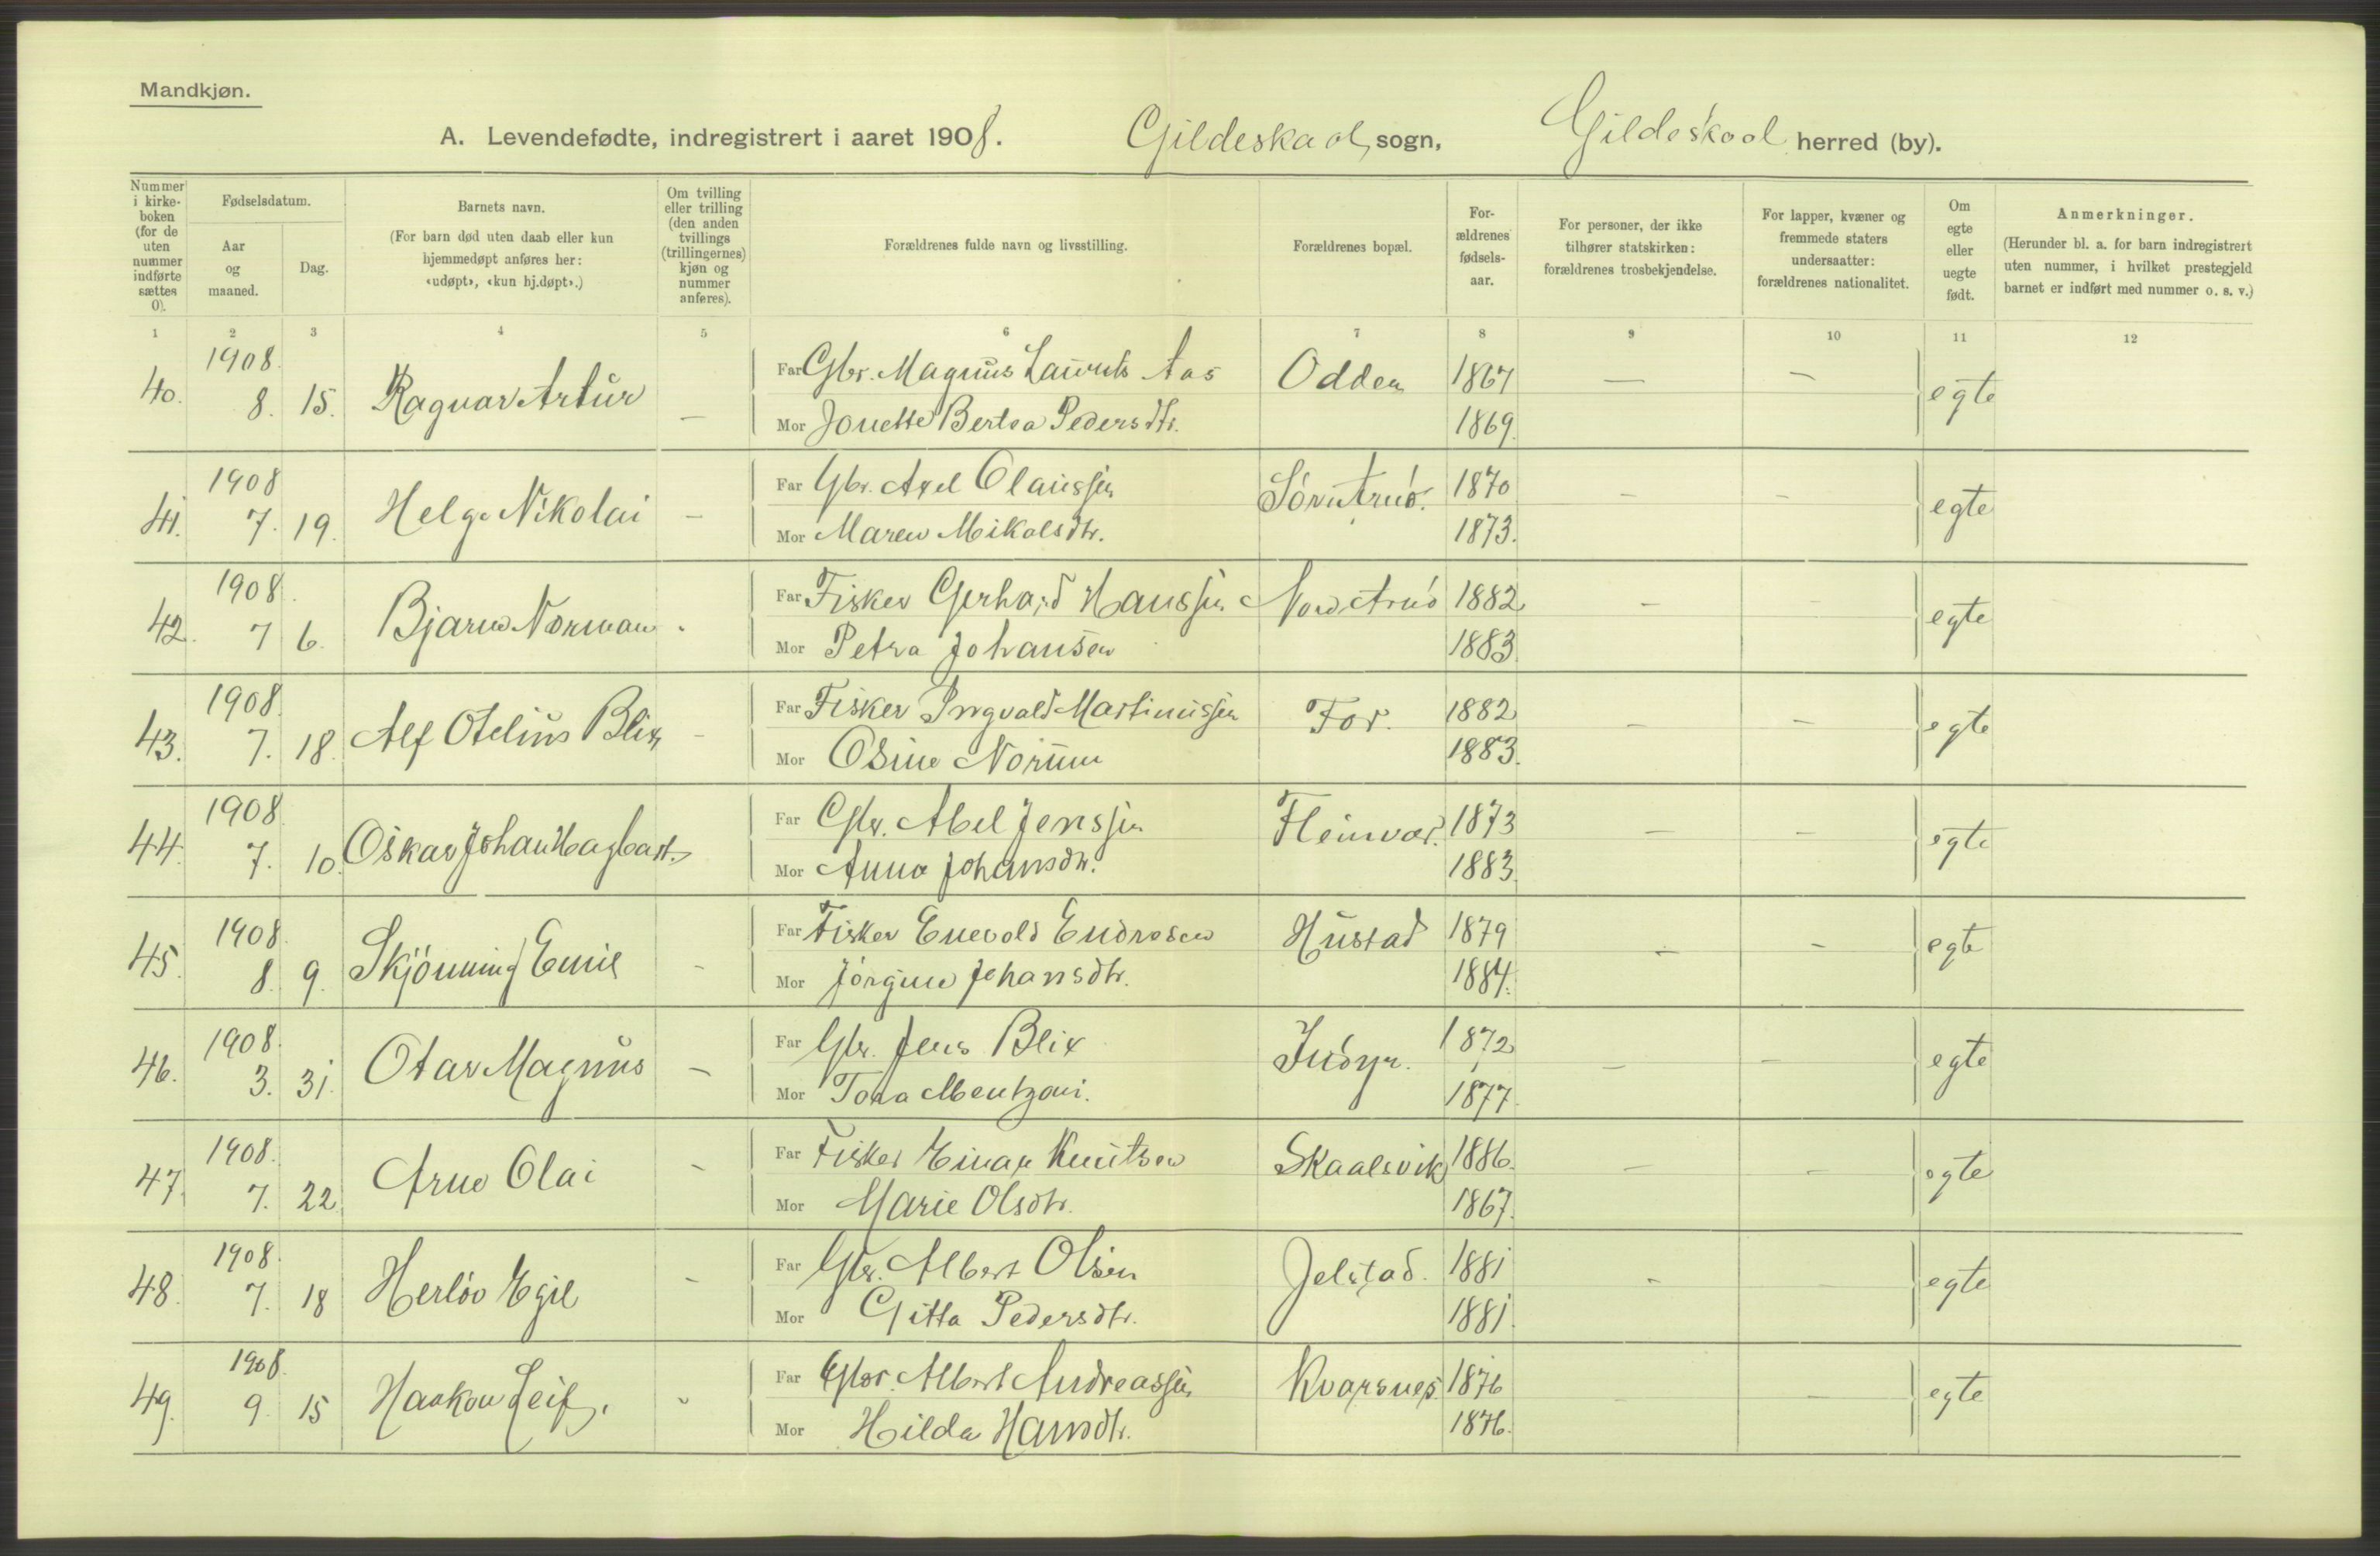 Mandkjøn.
A. Levendefødte, indregistrert i aaret 1908. Gildeskaal sogn, Gildeskaal herred (by).
Nummer i kirkeboken (for de uten nummer indførte sættes 0). Fødselsdatum. Aar og maaned. Dag. Barnets navn. (For barn død uten daab eller kun hjemmedøpt anføres her: «udøpt», «kun hj.døpt».) Om tvilling eller trilling (den anden tvillings (trillingernes) kjøn og nummer anføres). Forældrenes fulde navn og livsstilling. Forældrenes bopæl. Forældrenes fødselsaar. For personer, der ikke tilhører statskirken: forældrenes trosbekjendelse. For lapper, kvæner og fremmede staters undersaatter: forældrenes nationalitet. Om egte eller uegte født. Anmerkninger. (Herunder bl. a. for barn indregistrert uten nummer, i hvilket prestegjeld barnet er indført med nummer o. s. v.)
1 2 3 4 5 6 7 8 9 10 11 12
40. 1908. 8. 15. Ragnar Artur — Far Gbr. Magnus Laurits Aas Odden 1867 — — egte
Mor Jonette Bertea Pedersdtr. 1869.
41. 1908 7. 19. Helge Nikolai — Far Gbr. Axel Olaussen Sørarnø. 1870 — — egte
Mor Maren Mikalsdtr. 1873.
42. 1908. 7 6. Bjarne Norman - Far Fisker Gerhard Hanssen Nordarnø 1882 — — egte
Mor Petra Johansen 1883.
43. 1908. 7. 18. Alf Otelius Blix - Far Fisker Ingvald Martinussen For. 1882 — — egte
Mor Osine Norum 1883.
44. 1908. 7. 10. Oskar Johan Hagbart. Far Gbr. Abel Jenssen Fleinvær. 1873 — — egte
Mor Anna Johansdtr. 1883.
45. 1908. 8. 9. Skjönning Emil - Far Fisker Enevold Endresen Hustad 1879 — — egte
Mor Jörgine Johansdtr. 1884.
46. 1908. 3. 31. Otar Magnus — Far Gbr. Jens Blix Indyr. 1872 — — egte
Mor Tora Mentzoni. 1877.
47. 1908. 7. 22. Arne Olai - Far Fisker Einar Knutsen Skaalsvik 1886. — — egte
Mor Marie Olsdtr. 1867.
48. 1908. 7. 18 Herlöv Egil - Far Gbr. Albert Olsen Jelstad. 1881 - — egte
Mor Gitta Pedersdtr. 1881.
49. 1908. 9. 15 Haakon Leif. Far Gbr. Albert Andreassen Kvarsnes. 1876 - — egte
Mor Hilda Hansdtr. 1876.